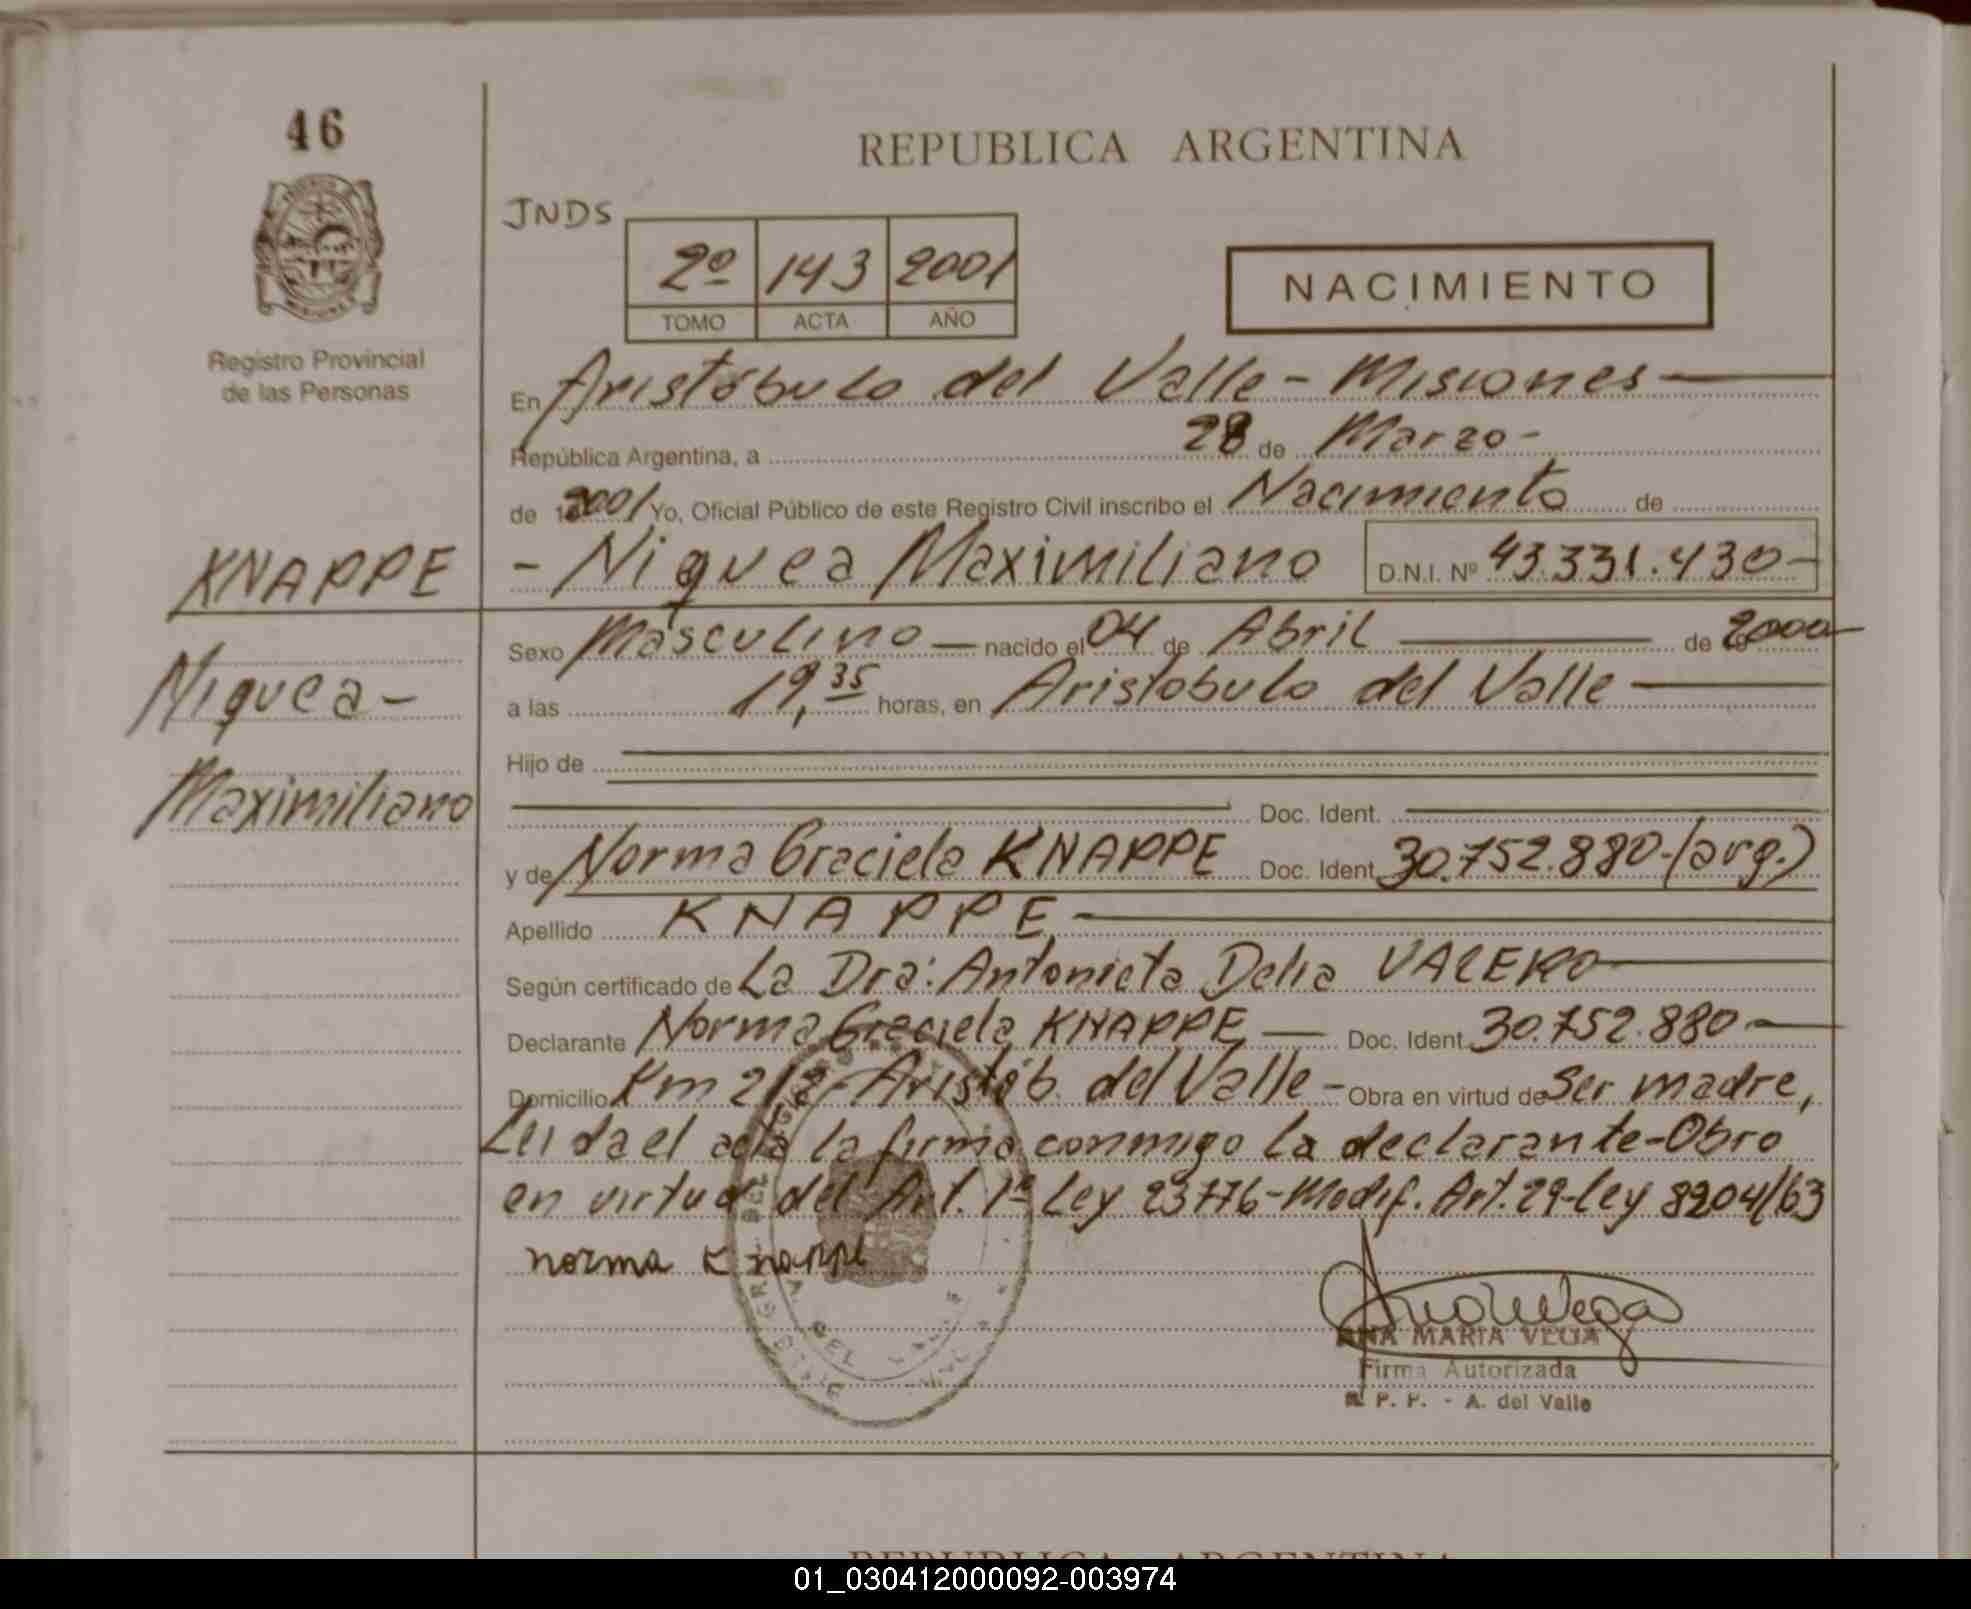 46
REPUBLICA ARGENTINA
JNDS
2º 143 2001
TOMO ACTA AÑO
NACIMIENTO
Registro Provincial
de las Personas
En Aristóbulo del Valle - Misiones
República Argentina, a 28 de Marzo -
de 2001 Yo, Oficial Público de este Registro Civil inscribo el Nacimiento de
KNAPPE
- Niquea Maximiliano D.N.I. Nº 43.331.430 -
Niquea -
Maximiliano
Sexo Masculino — nacido el 04 de Abril — de 2000
a las 19,35 horas, en Aristobulo del Valle —
Hijo de
Doc. Ident.
y de Norma Graciela KNAPPE Doc. Ident. 30.752.880 - (arg.)
Apellido KNAPPE —
Según certificado de La Dra: Antonieta Delia VALERO
Declarante Norma Graciela KNAPPE — Doc. Ident. 30.752.880 —
Domicilio Km 212 - Aristób. del Valle - Obra en virtud de Ser madre,
Leida el acta la firma conmigo la declarante - Obro
en virtud del Art. 1º Ley 23776 - Modif. Art. 29 - Ley 8204/63
norma Knappe
ANA MARIA VEGA
Firma Autorizada
R. P. P. - A. del Valle
REPUBLICA ARGENTINA
01_030412000092-003974